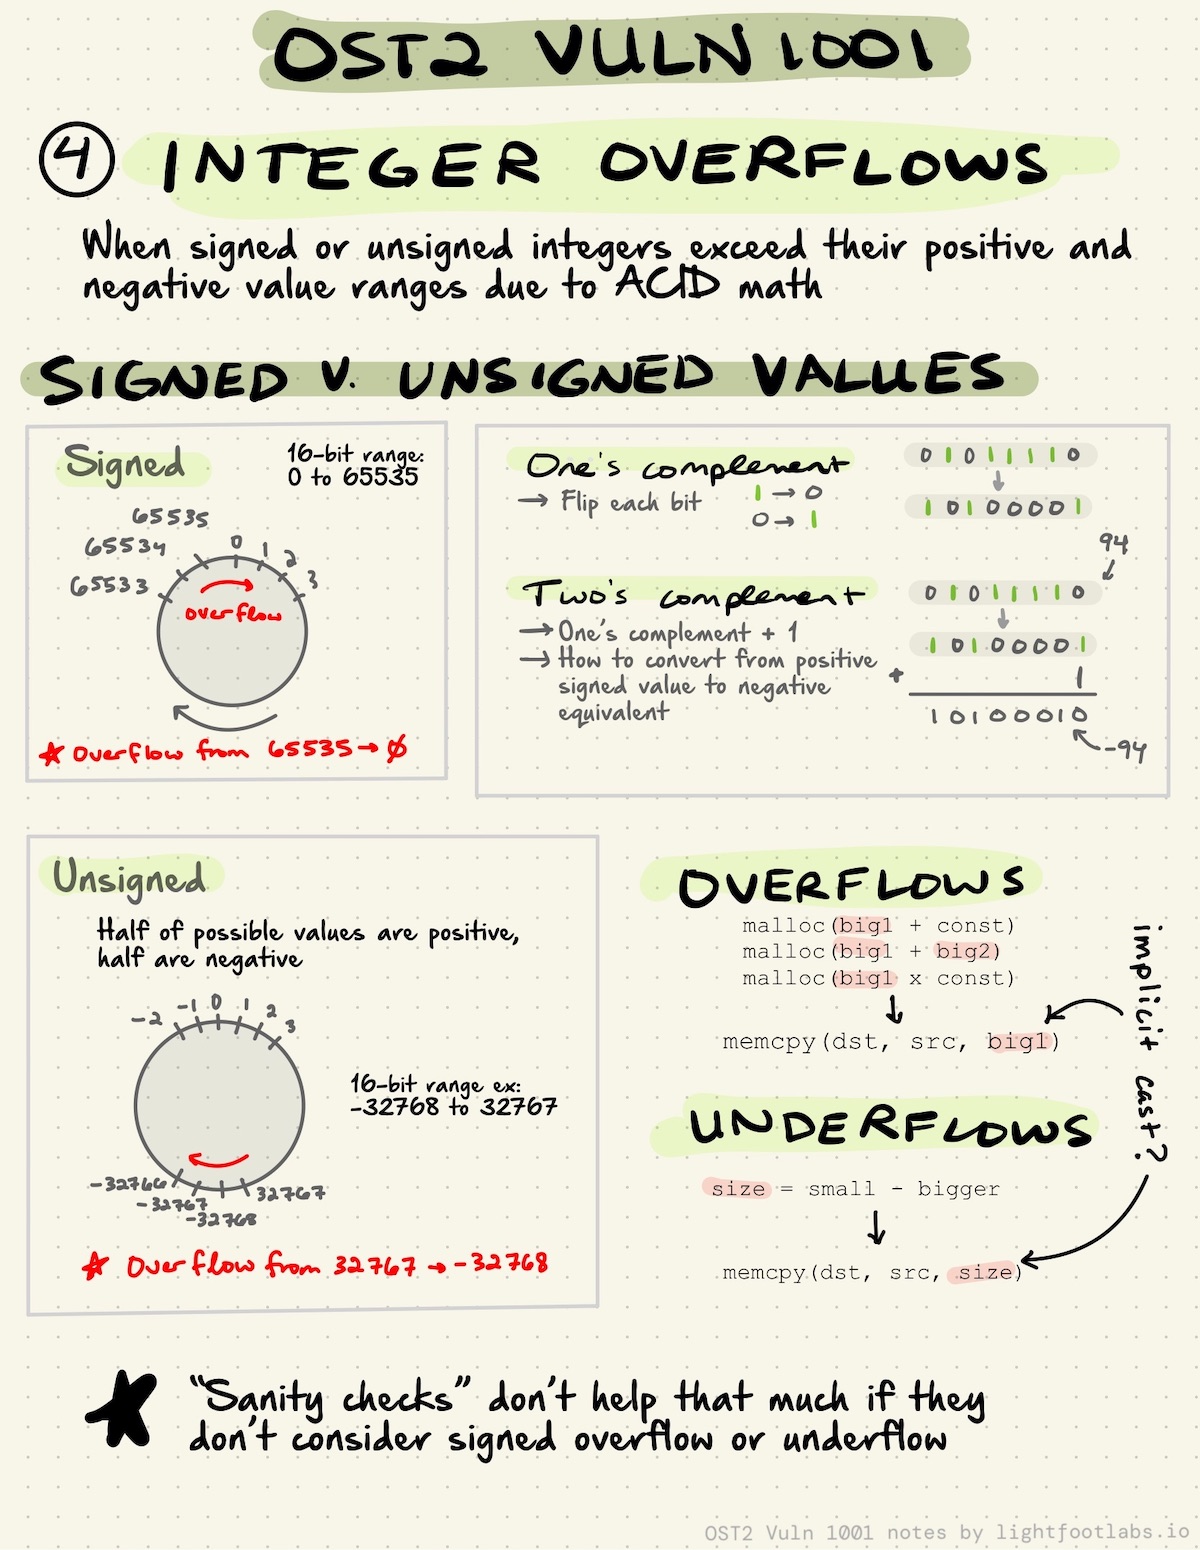 OST2 VULN 1001
4 INTEGER OVERFLOWS
When signed or unsigned integers exceed their positive and
negative value ranges due to ACID math
SIGNED V. UNSIGNED VALUES
Signed
16-bit range:
0 to 65535
65535
65534
65533
0 1 2 3
overflow
★ Overflow from 65535 → 0
One's complement
→ Flip each bit
1 → 0
0 → 1
0 1 0 1 1 1 1 0
↓
1 0 1 0 0 0 0 1
Two's complement
→ One's complement + 1
→ How to convert from positive
signed value to negative
equivalent
94
0 1 0 1 1 1 1 0
↓
1 0 1 0 0 0 0 1
+ 1
1 0 1 0 0 0 1 0
-94
Unsigned
Half of possible values are positive,
half are negative
-2 -1 0 1 2 3
16-bit range ex:
-32768 to 32767
-32766
-32767
-32768
32767
★ Overflow from 32767 → -32768
OVERFLOWS
malloc(big1 + const)
malloc(big1 + big2)
malloc(big1 x const)
↓
memcpy(dst, src, big1)
implicit cast?
UNDERFLOWS
size = small - bigger
↓
memcpy(dst, src, size)
★ "Sanity checks" don't help that much if they
don't consider signed overflow or underflow
OST2 Vuln 1001 notes by lightfootlabs.io